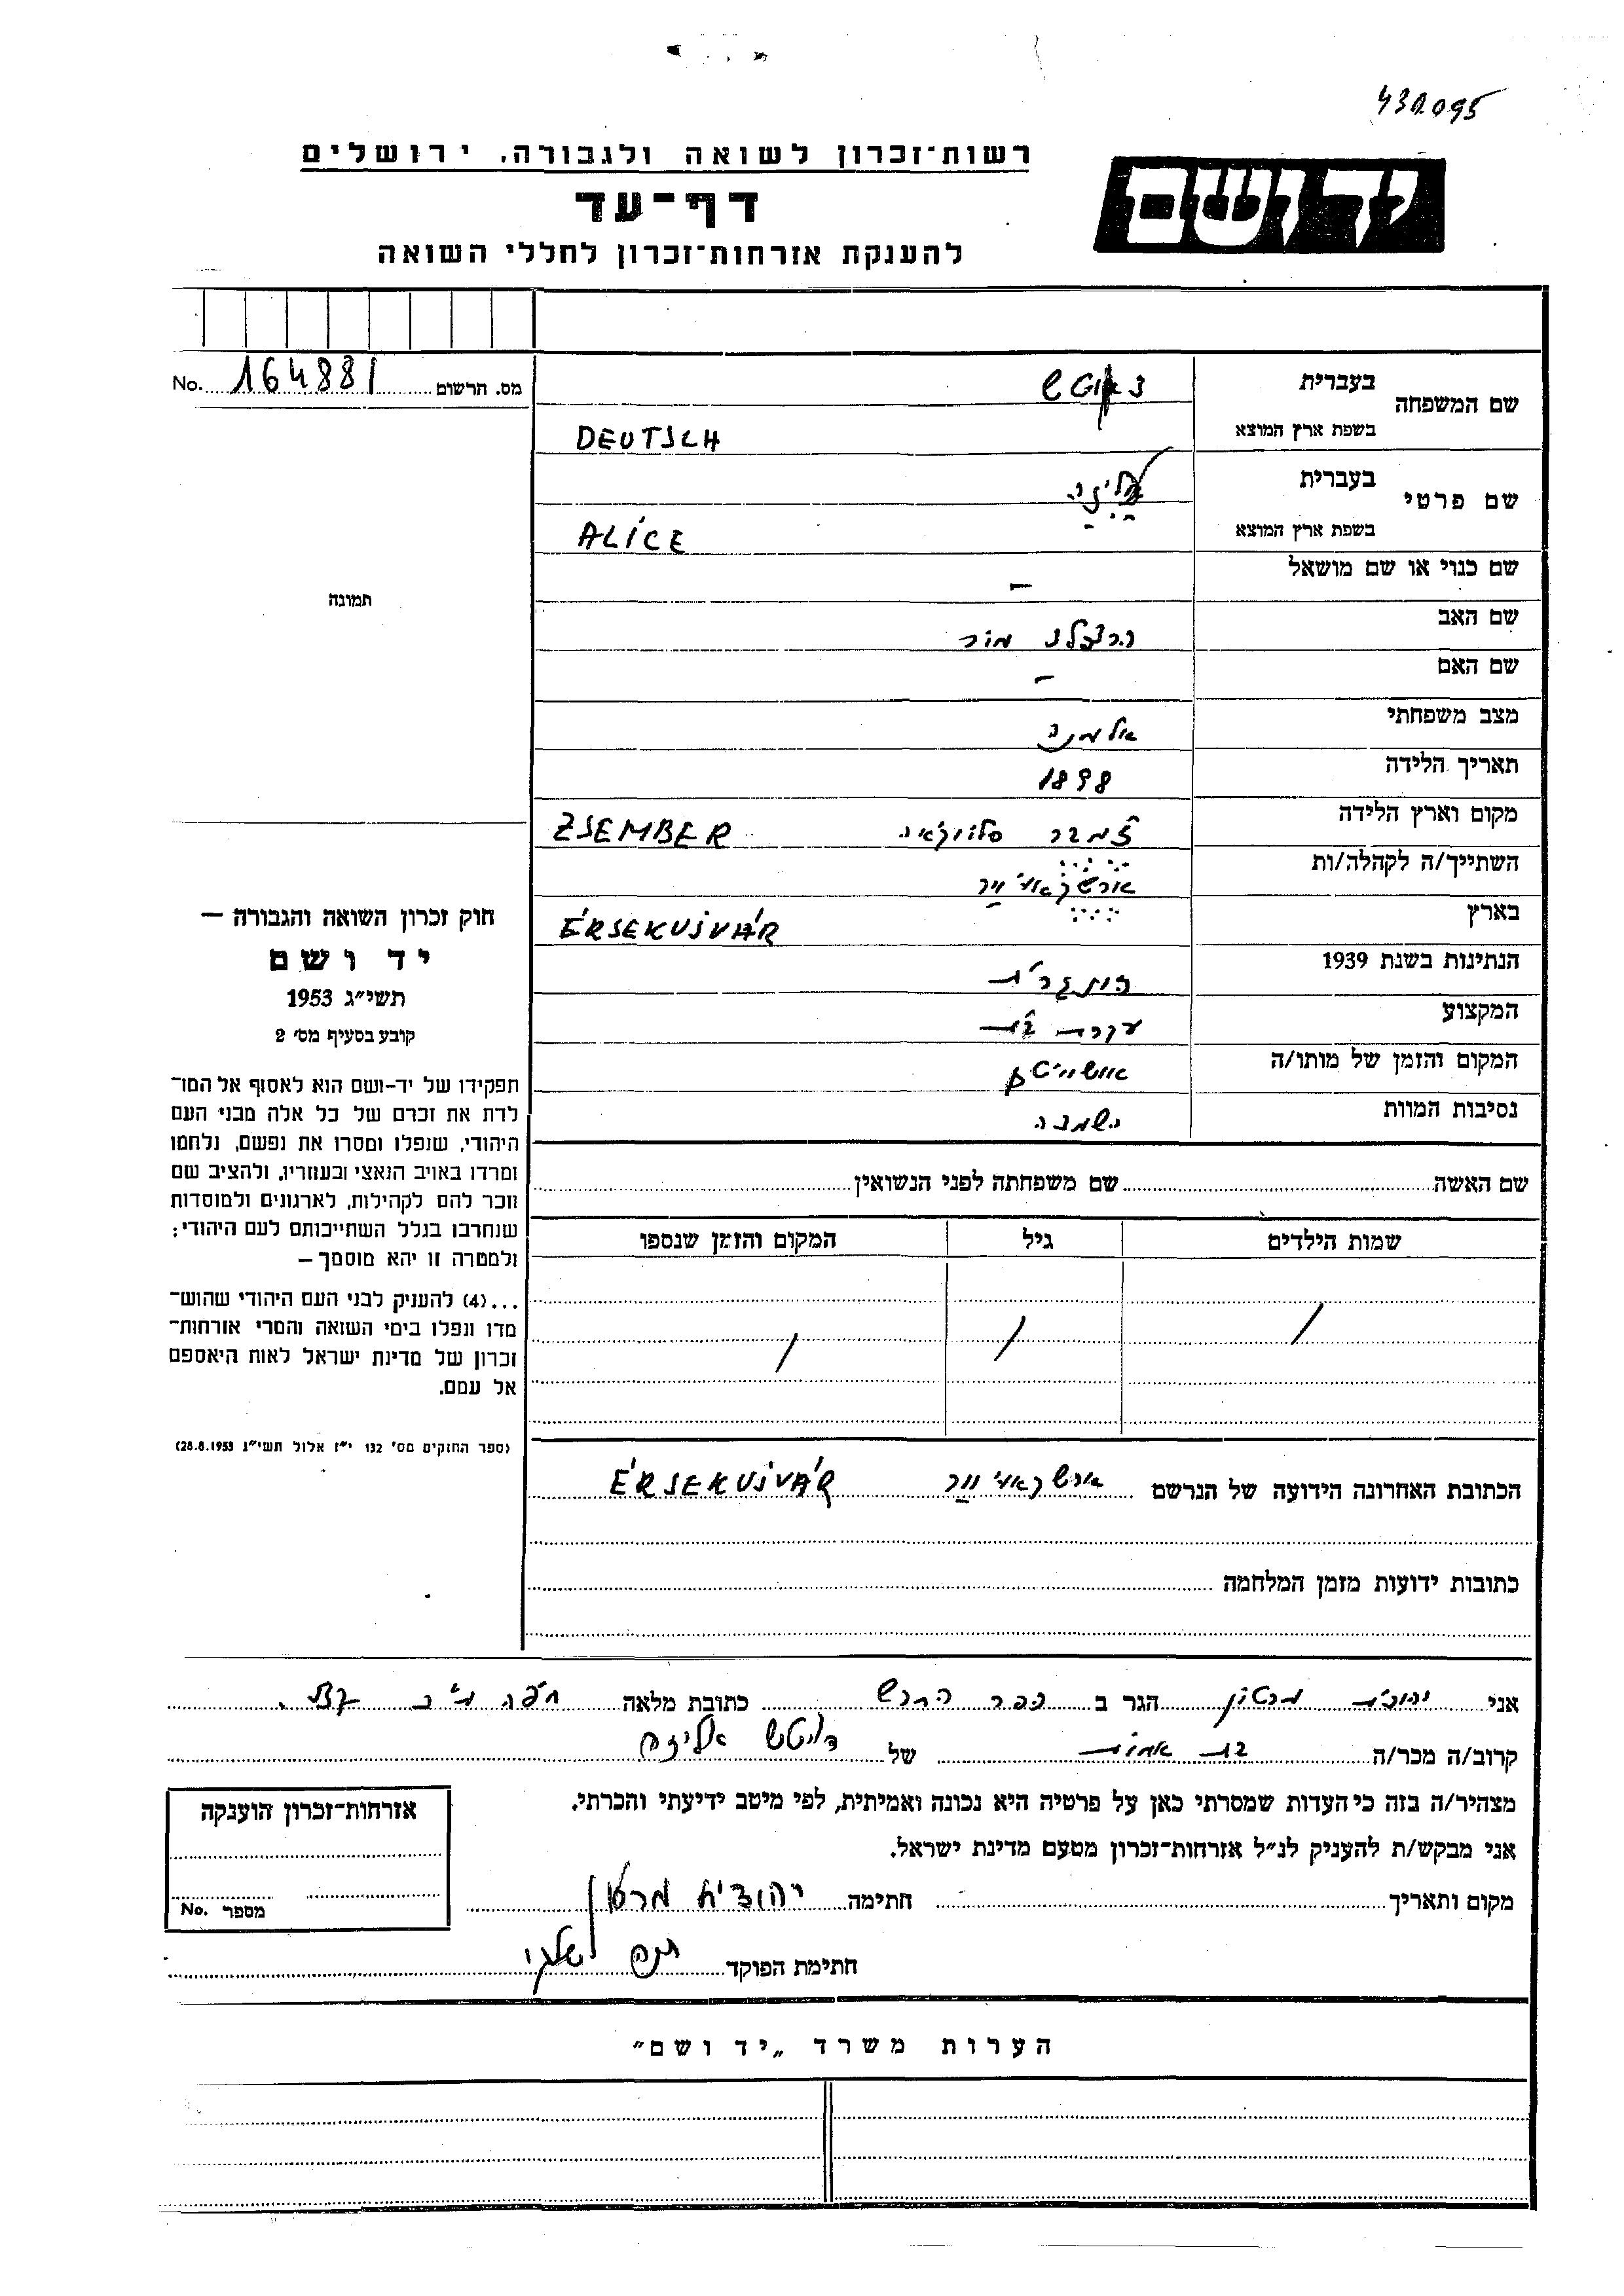 431095
רשות־זכרון לשואה ולגבורה, ירושלים
יד ושם
דף־עד
להענקת אזרחות־זכרון לחללי השואה
מס. הרשום 164881 No.
שם המשפחה בעברית
בשפת ארץ המוצא DEUTSCH
שם פרטי בעברית עליזה
בשפת ארץ המוצא ALICE
שם כנוי או שם מושאל —
תמונה
שם האב מור
שם האם —
מצב משפחתי אלמנה
תאריך הלידה 1898
מקום וארץ הלידה ז'מבר סלובקיה ZSEMBER
השתייך/ה לקהלה/ות
בארץ ÉRSEKUJVÁR
הנתינות בשנת 1939 הונגרית
המקצוע עקרת בית
המקום והזמן של מותו/ה
נסיבות המוות השמדה
חוק זכרון השואה והגבורה —
יד ושם
תשי״ג 1953
קובע בסעיף מס׳ 2
תפקידו של יד-ושם הוא לאסוף אל המו־
לדת את זכרם של כל אלה מבני העם
היהודי, שנפלו ומסרו את נפשם, נלחמו
ומרדו באויב הנאצי ובעוזריו, ולהציב שם
וזכר להם לקהילות, לארגונים ולמוסדות
שנחרבו בגלל השתייכותם לעם היהודי;
ולמטרה זו יהא מוסמך —
...(4) להעניק לבני העם היהודי שהוש־
מדו ונפלו בימי השואה והמרי אזרחות־
זכרון של מדינת ישראל לאות היאספם
אל עמם.
(ספר החוקים מס׳ 132 י״ז אלול תשי״ג 28.8.1953)
שם האשה שם משפחתה לפני הנשואין
שמות הילדים גיל המקום והזמן שנספו
/ / /
הכתובת האחרונה הידועה של הנרשם ÉRSEKUJVÁR
כתובות ידועות מזמן המלחמה
אני יהודית מרטון הגר ב כפר החרש כתובת מלאה
קרוב/ה מכר/ה בת אחות של דויטש אליזה
מצהיר/ה בזה כי העדות שמסרתי כאן על פרטיה היא נכונה ואמיתית, לפי מיטב ידיעתי והכרתי.
אני מבקש/ת להעניק לנ״ל אזרחות־זכרון מטעם מדינת ישראל.
מקום ותאריך חתימה יהודית מרטון
חתימת הפוקד
אזרחות־זכרון הוענקה
מספר No.
הערות משרד „יד ושם״